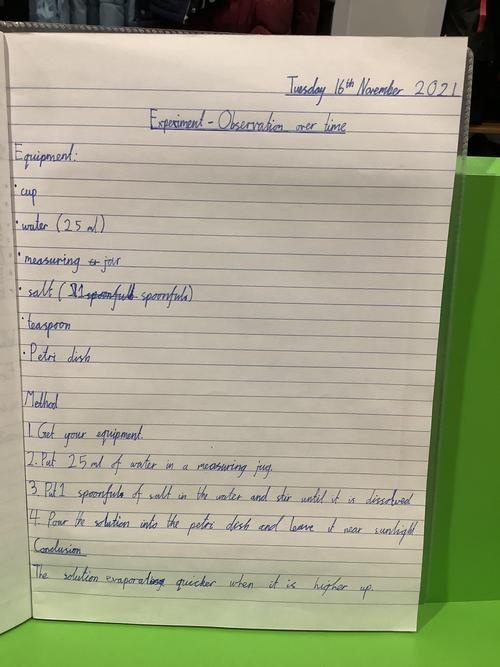 Tuesday 16th November 2021
Experiment - Observation over time
Equipment:
· cup
· water (25 ml)
· measuring jar
· salt (1 spoonful spoonfuls)
· teaspoon
· Petri dish
Method
1. Get your equipment.
2. Put 25 ml of water in a measuring jug.
3. Put 1 spoonfuls of salt in the water and stir until it is dissolved
4. Pour the solution into the petri dish and leave it near sunlight
Conclusion
The solution evaporating quicker when it is higher up.